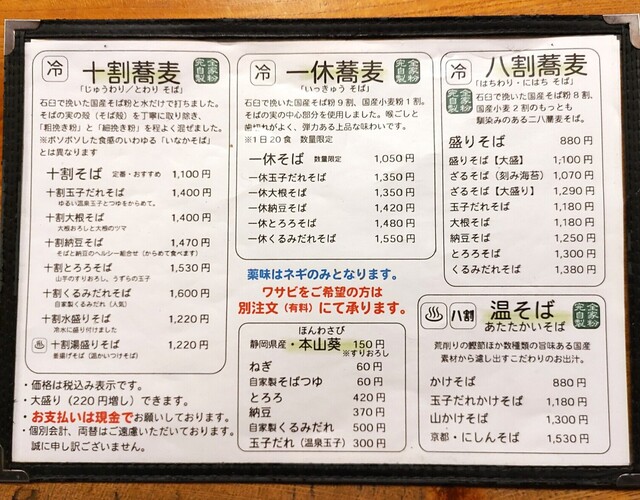 冷 十割蕎麦 全家粉完自製
「じゅうわり／とわり そば」
石臼で挽いた国産そば粉と水だけで打ちました。
そばの実の殻（そば殻）を丁寧に取り除き、
「粗挽き粉」と「細挽き粉」を程よく混ぜました。
※ボソボソした食感のいわゆる「いなかそば」
とは異なります
十割そば 定番・おすすめ 1,100円
十割玉子だれそば 1,400円
ゆるい温泉玉子とつゆをからめて。
十割大根そば 1,400円
大根おろしと大根のツマ
十割納豆そば 1,470円
そばと納豆のヘルシー組合せ（からめて食べます）
十割とろろそば 1,530円
山芋のすりおろし、うずらの玉子
十割くるみだれそば 1,600円
自家製くるみだれ（人気）
十割水盛りそば 1,220円
冷水に盛り付けました
十割湯盛りそば 1,220円
釜揚げそば（温かいつけそば）
・価格は税込み表示です。
・大盛り（220円増し）できます。
・お支払いは現金でお願いしております。
・個別会計、両替はご遠慮いただいております。
誠に申し訳ございません。
冷 一休蕎麦 全家粉完自製
「いっきゅう そば」
石臼で挽いた国産そば粉９割、国産小麦粉１割。
そばの実の中心部分を使用しました。喉ごしと
歯切れがよく、弾力ある上品な味わいです。
※１日20食 数量限定
一休そば 数量限定 1,050円
一休玉子だれそば 1,350円
一休大根そば 1,350円
一休納豆そば 1,420円
一休とろろそば 1,480円
一休くるみだれそば 1,550円
薬味はネギのみとなります。
ワサビをご希望の方は
別注文（有料）にて承ります。
ほんわさび
静岡県産・本山葵 150円
※すりおろし
ねぎ 60円
自家製そばつゆ 60円
とろろ 420円
納豆 370円
自家製くるみだれ 500円
玉子だれ（温泉玉子）300円
冷 八割蕎麦
「はちわり・にはち そば」
全家粉完自製
石臼で挽いた国産そば粉８割、
国産小麦粉２割のもっとも
馴染みのある二八蕎麦そば。
盛りそば 880円
盛りそば【大盛】 1,100円
ざるそば（刻み海苔）1,070円
ざるそば【大盛り】 1,290円
玉子だれそば 1,180円
大根そば 1,180円
納豆そば 1,250円
とろろそば 1,300円
くるみだれそば 1,380円
八割 温そば 全家粉完自製
あたたかいそば
荒削りの鰹節ほか数種類の旨味ある国産
素材から濾し出すこだわりのお出汁。
かけそば 880円
玉子だれかけそば 1,180円
山かけそば 1,300円
京都・にしんそば 1,530円